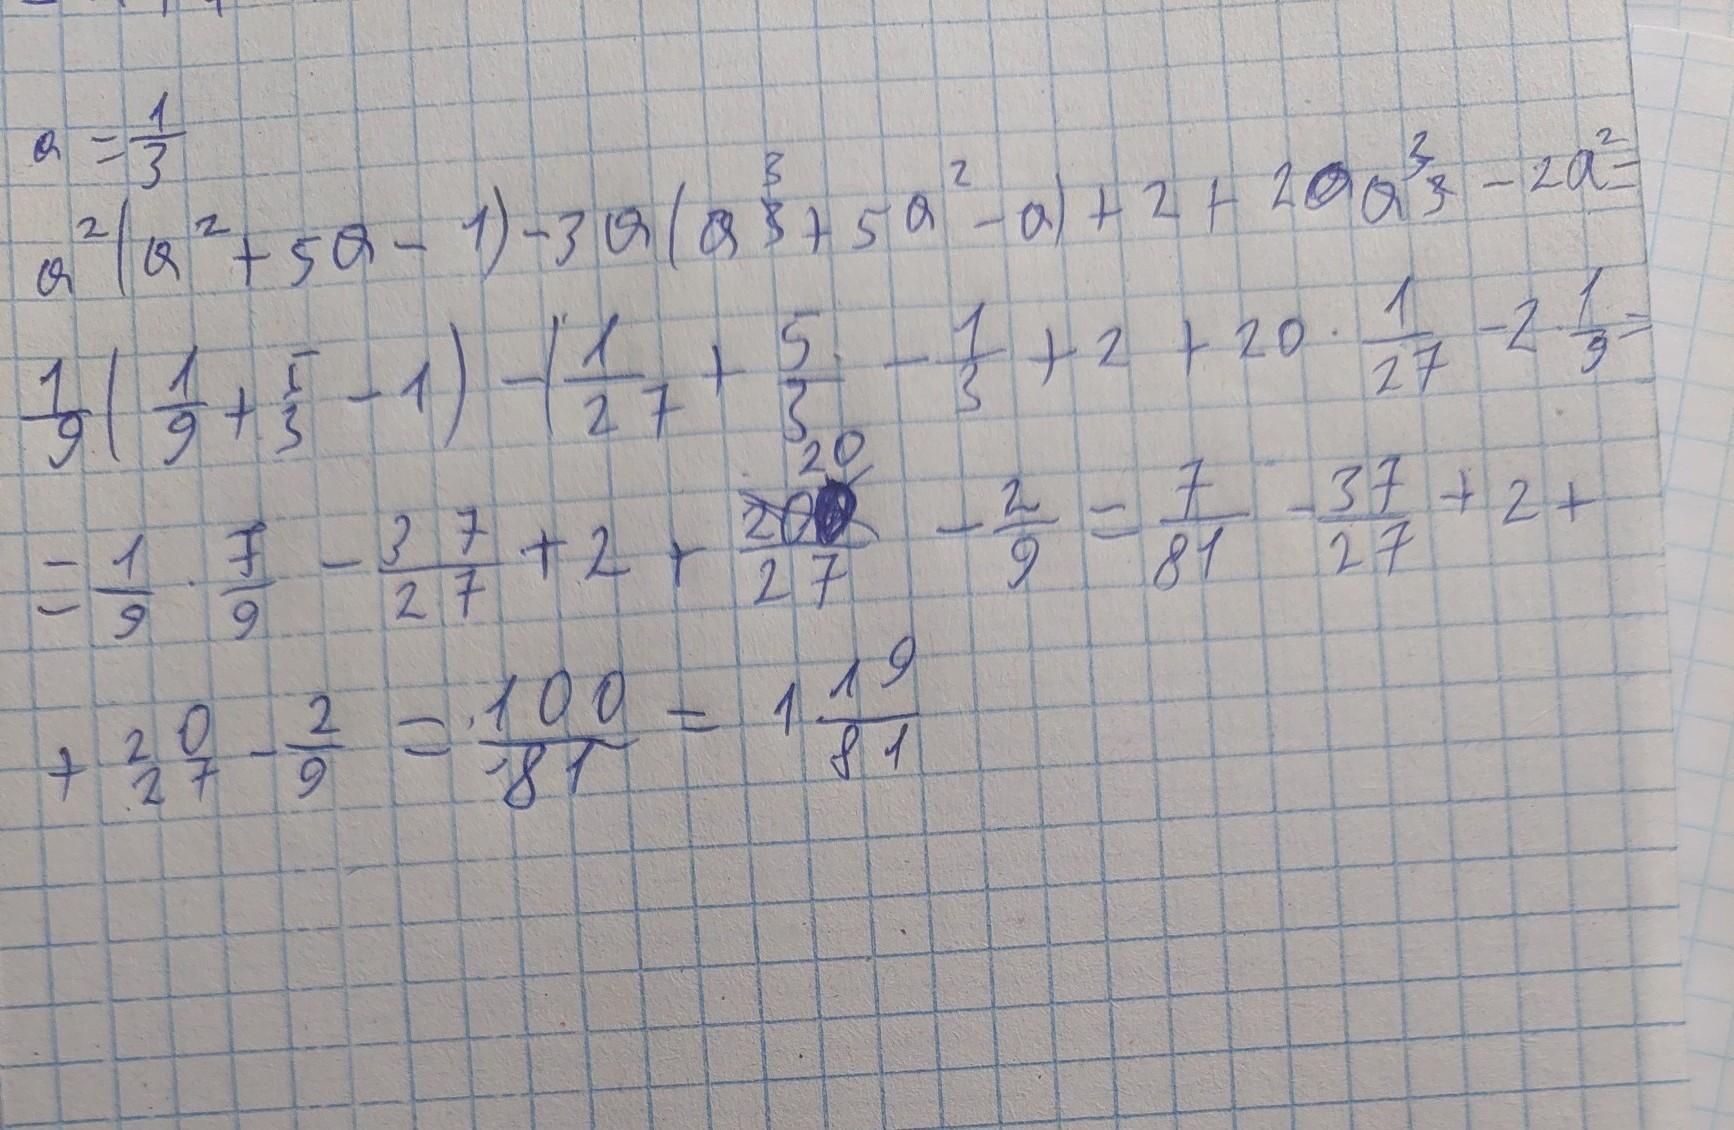 a = 1/3
a²(a² + 5a - 1) - 3a(a³ + 5a² - a) + 2 + 20a³ - 2a² =
1/9(1/9 + 5/3 - 1) - (1/27 + 5/3 - 1/3 + 2 + 20 · 1/27 - 2 · 1/9 =
= 1/9 · 7/9 - 37/27 + 2 + 20/27 - 2/9 = 7/81 - 37/27 + 2 +
+ 20/27 - 2/9 = 100/81 = 1 19/81